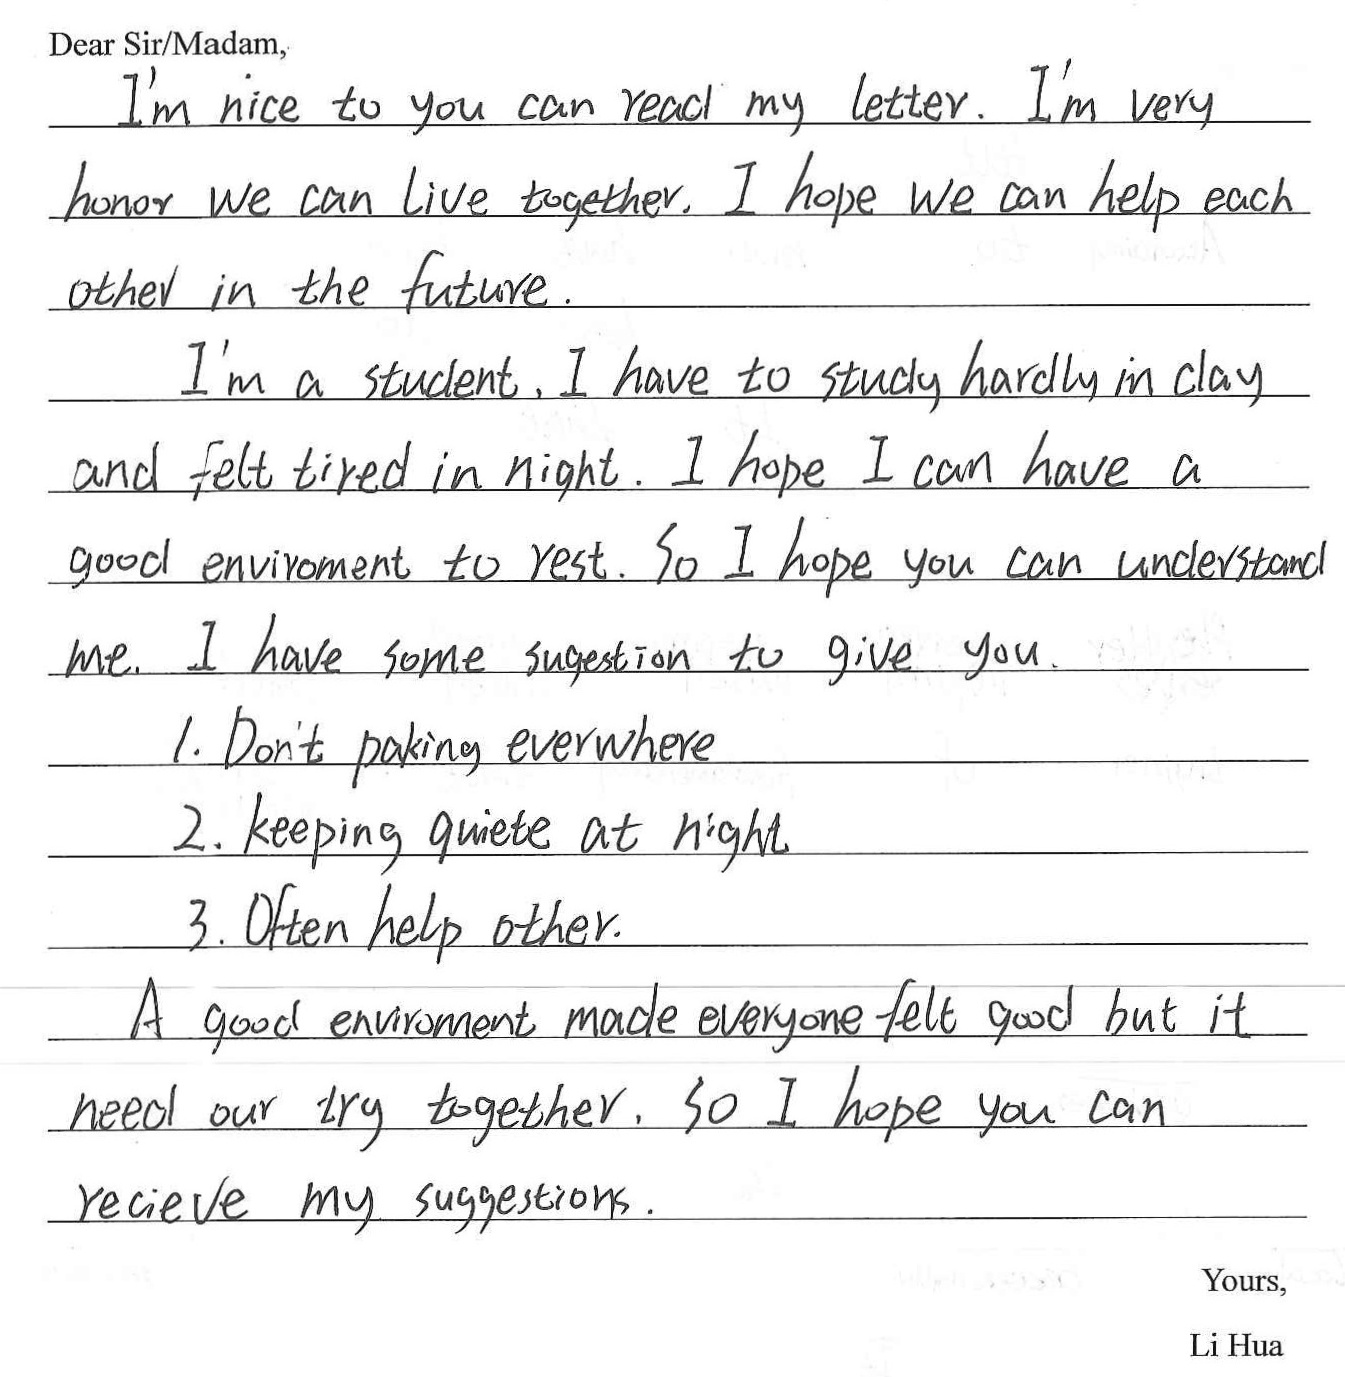 Dear Sir/Madam,
I'm nice to you can read my letter. I'm very
honor we can live together. I hope we can help each
other in the future.
I'm a student. I have to study hardly in day
and felt tired in night. I hope I can have a
good enviroment to rest. So I hope you can understand
me. I have some sugestion to give you.
1. Don't paking everwhere
2. keeping quiete at night
3. Often help other.
A good enviroment made everyone felt good but it
need our try together. So I hope you can
recieve my suggestions.
Yours,
Li Hua